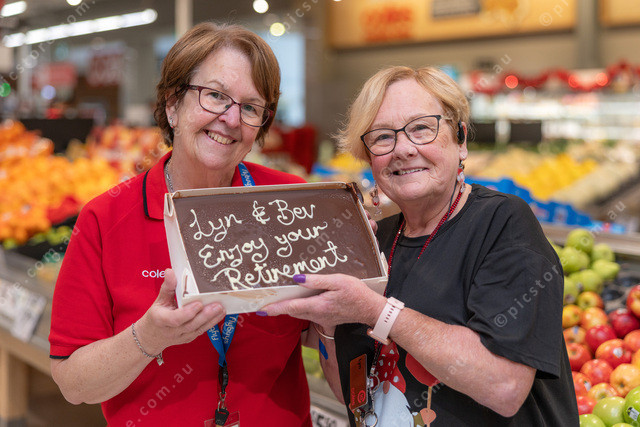 coles
picstore.com.au
Lyn & Bev
Enjoy your
Retirement
cole